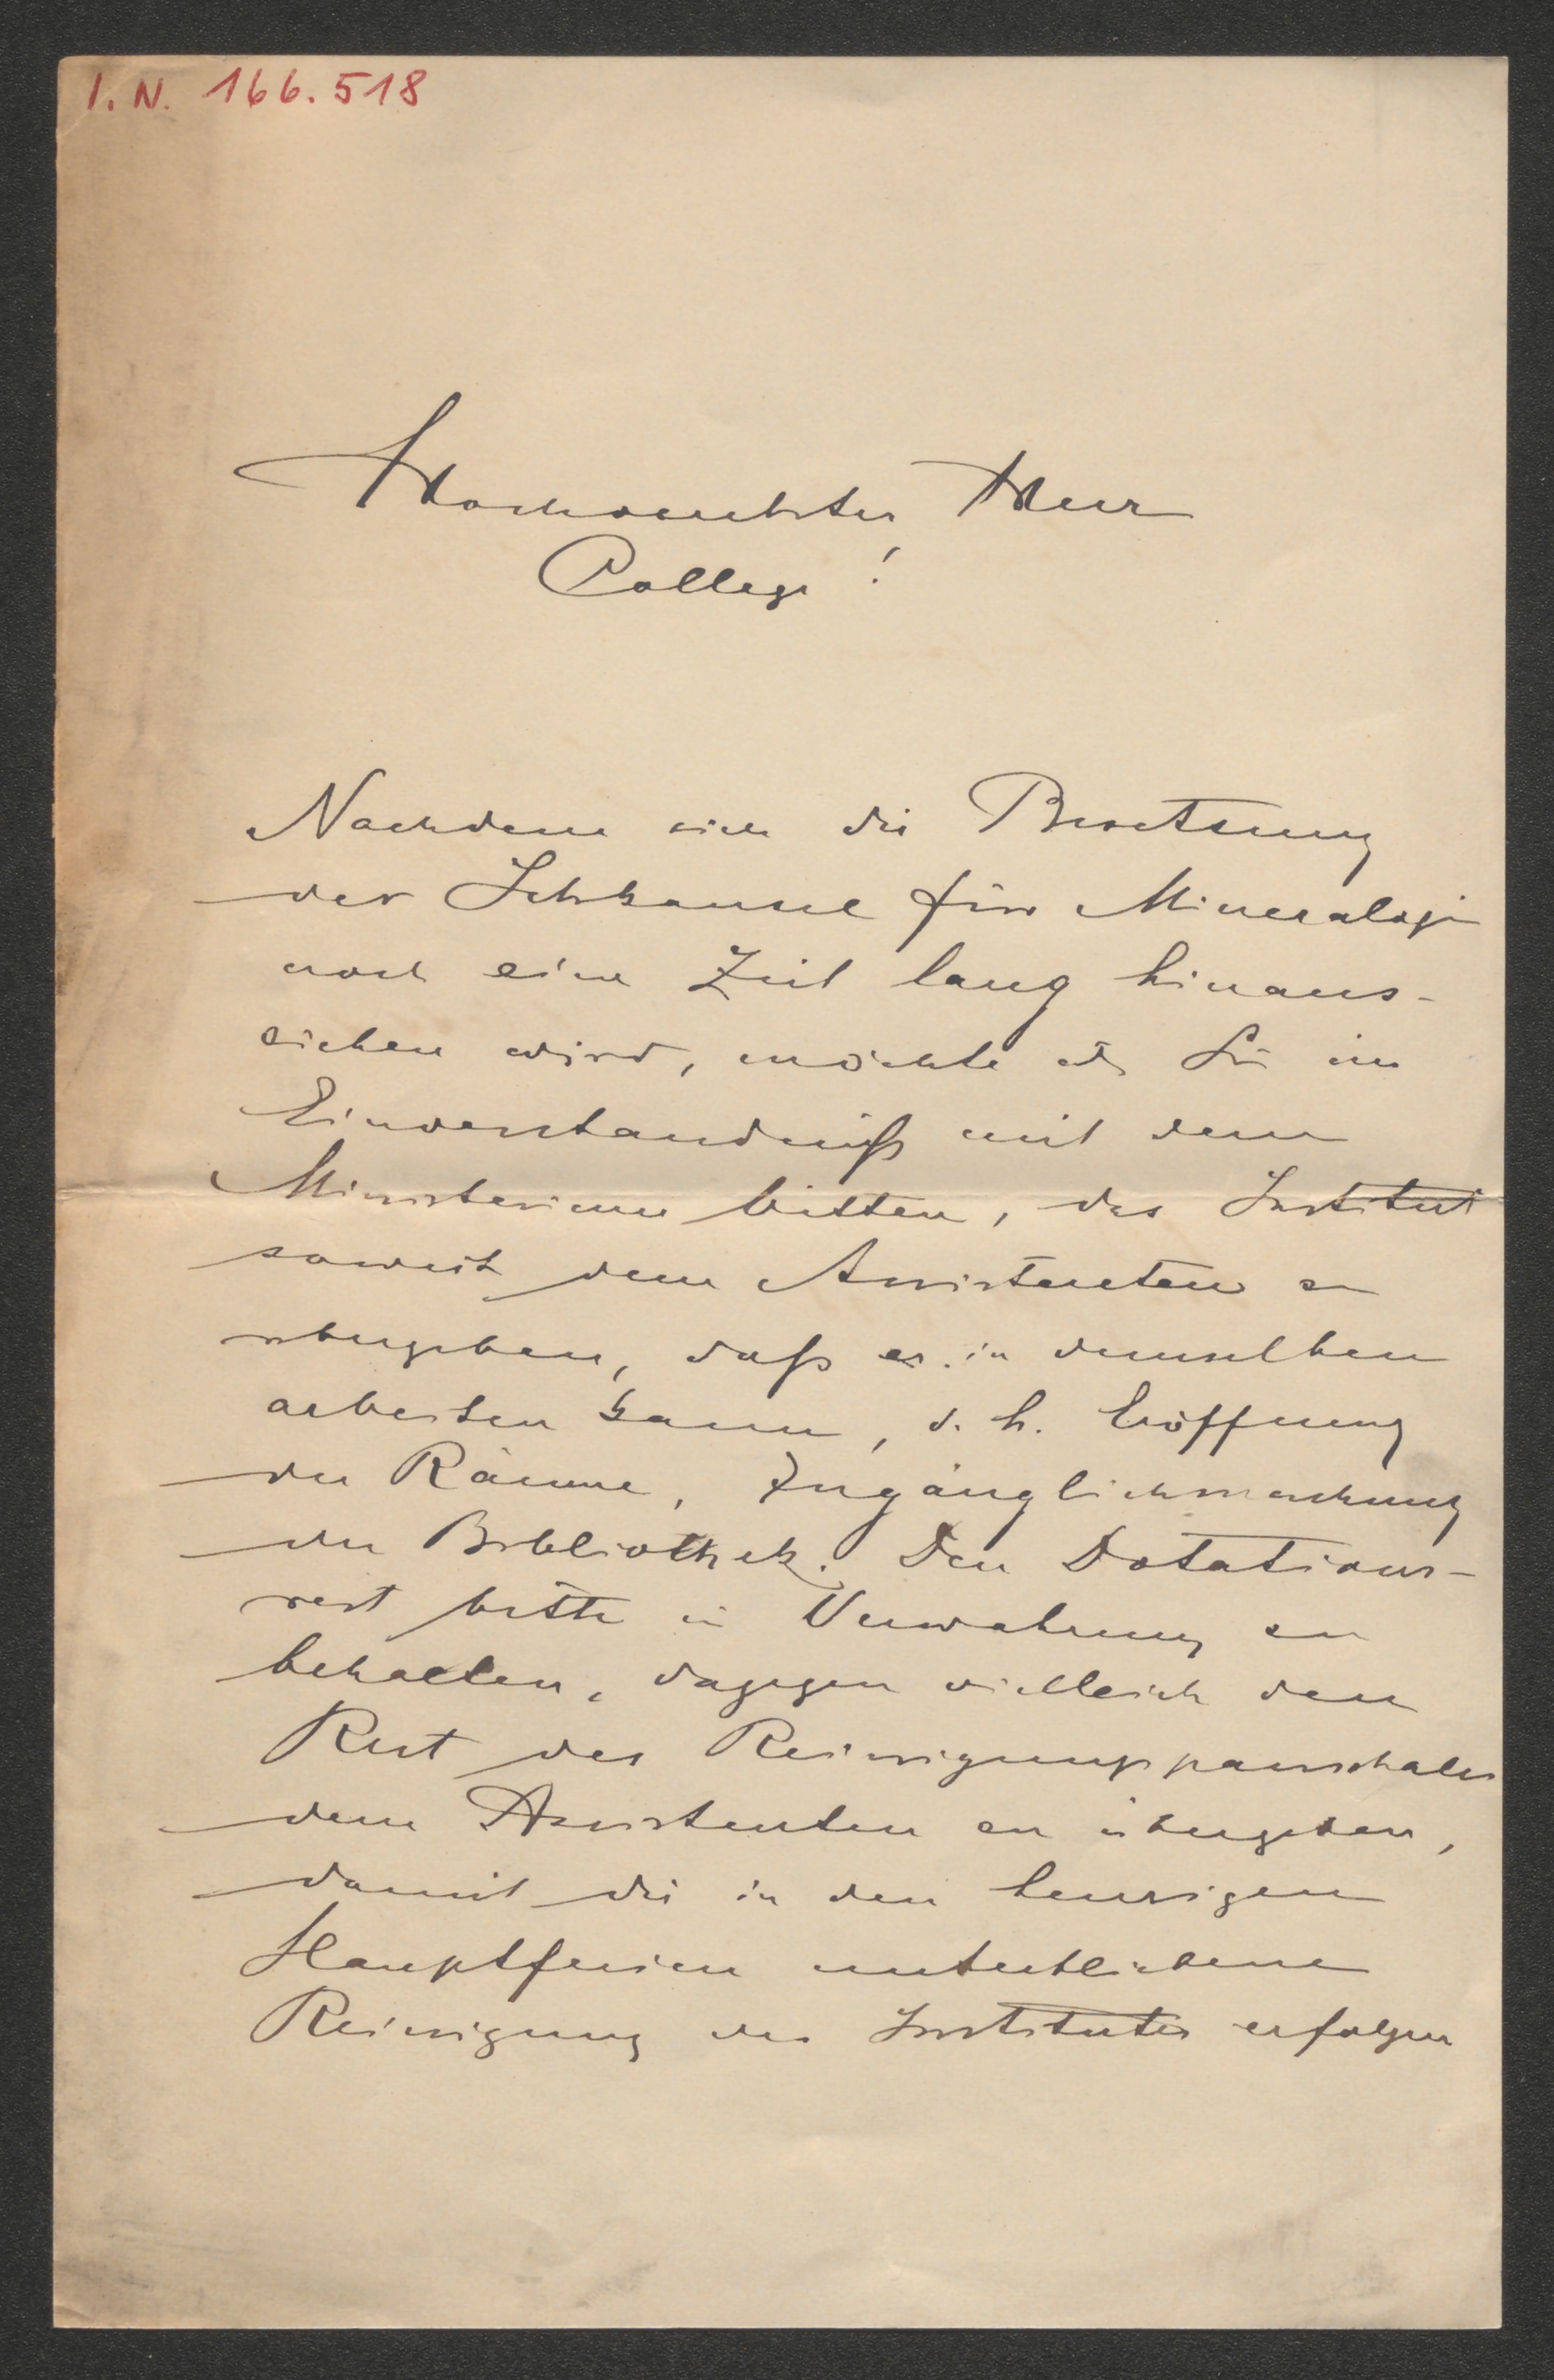 I. N. 166.518
Hochverehrter Herr
College!
Nachdem sich die Besetzung
der Lehrkanzel für Mineralogie
noch eine Zeit lang hinaus-
ziehen wird, möchte ich Sie im
Einverständniß mit dem
Ministerium bitten, das Institut
soweit dem Assistenten zu
übergeben, daß er in demselben
arbeiten kann, d. h. Eröffnung
der Räume, Zugänglichmachung
der Bibliothek. Den Dotations-
rest bitte in Verwahrung zu
behalten, dagegen vielleich den
Rest des Reinigungspauschales
dem Assistenten zu übergeben,
damit die in den heurigen
Hauptferien unterbliebene
Reinigung des Institutes erfolgen